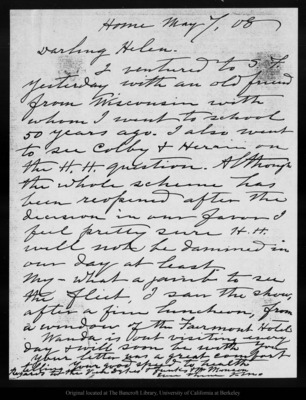 Home May 7, 08
Darling Helen.
I ventured to S F
yesterday with an old friend
from Wisconsin with
whom I went to school
50 years ago. I also went
to see Colby & Herrin on
the H.H. question. Although
the whole scheme has
been reopened after the
decision in our favor I
feel pretty sure H.H.
will not be dammed in
our day at least.
My - what a jaunt to see
the fleet, I saw the show,
after a fine luncheon, from
a window of the Fairmont Hotel
Wanda is out visiting every
day & will soon be with you
Your letter was a great comfort
telling your good health
Original located at The Bancroft Library, University of California at Berkeley